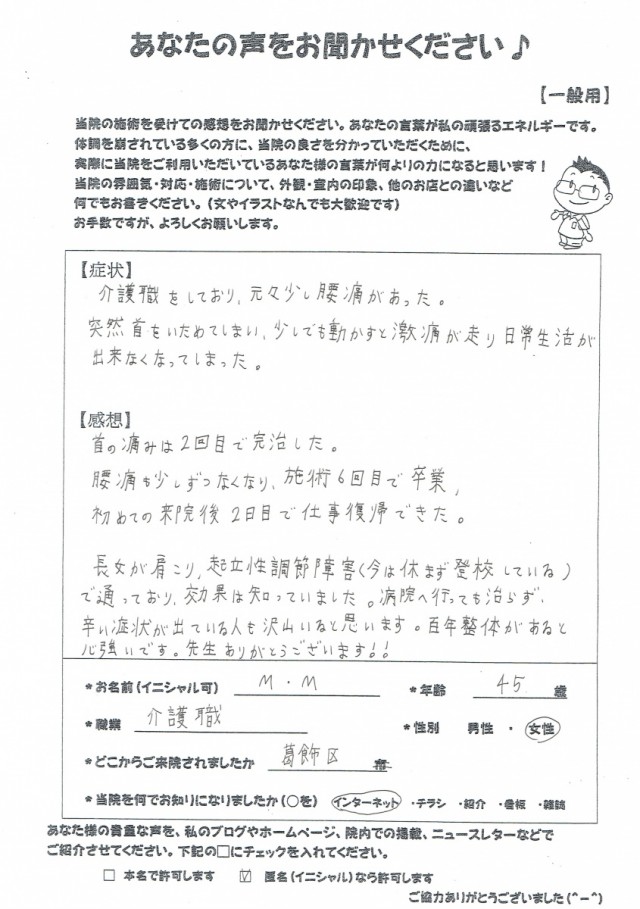 あなたの声をお聞かせください♪
【一般用】
当院の施術を受けての感想をお聞かせください。あなたの言葉が私の頑張るエネルギーです。
体調を崩されている多くの方に、当院の良さを分かっていただくために、
実際に当院をご利用いただいているあなた様の言葉が何よりの力になると思います！
当院の雰囲気・対応・施術について、外観・室内の印象、他のお店との違いなど
何でもお書きください。（文やイラストなんでも大歓迎です）
お手数ですが、よろしくお願いします。
【症状】
介護職をしており、元々少し腰痛があった。
突然首をいためてしまい、少しでも動かすと激痛が走り日常生活が
出来なくなってしまった。
【感想】
首の痛みは2回目で完治した。
腰痛も少しずつなくなり、施術6回目で卒業、
初めての来院後2日目で仕事復帰できた。
長女が肩こり、起立性調節障害（今は休まず登校している）
で通っており、効果は知っていました。病院へ行っても治らず、
辛い症状が出ている人も沢山いると思います。百年整体があると
心強いです。先生ありがとうございます！！
*お名前（イニシャル可） M・M *年齢 45 歳
*職業 介護職 *性別 男性 ・ 女性
*どこからご来院されましたか 葛飾区 市
*当院を何でお知りになりましたか（○を） インターネット ・チラシ ・紹介 ・看板 ・雑誌
あなた様の貴重な声を、私のブログやホームページ、院内での掲載、ニュースレターなどで
ご紹介させてください。下記の□にチェックを入れてください。
□ 本名で許可します ☑ 匿名（イニシャル）なら許可します
ご協力ありがとうございました(^-^)